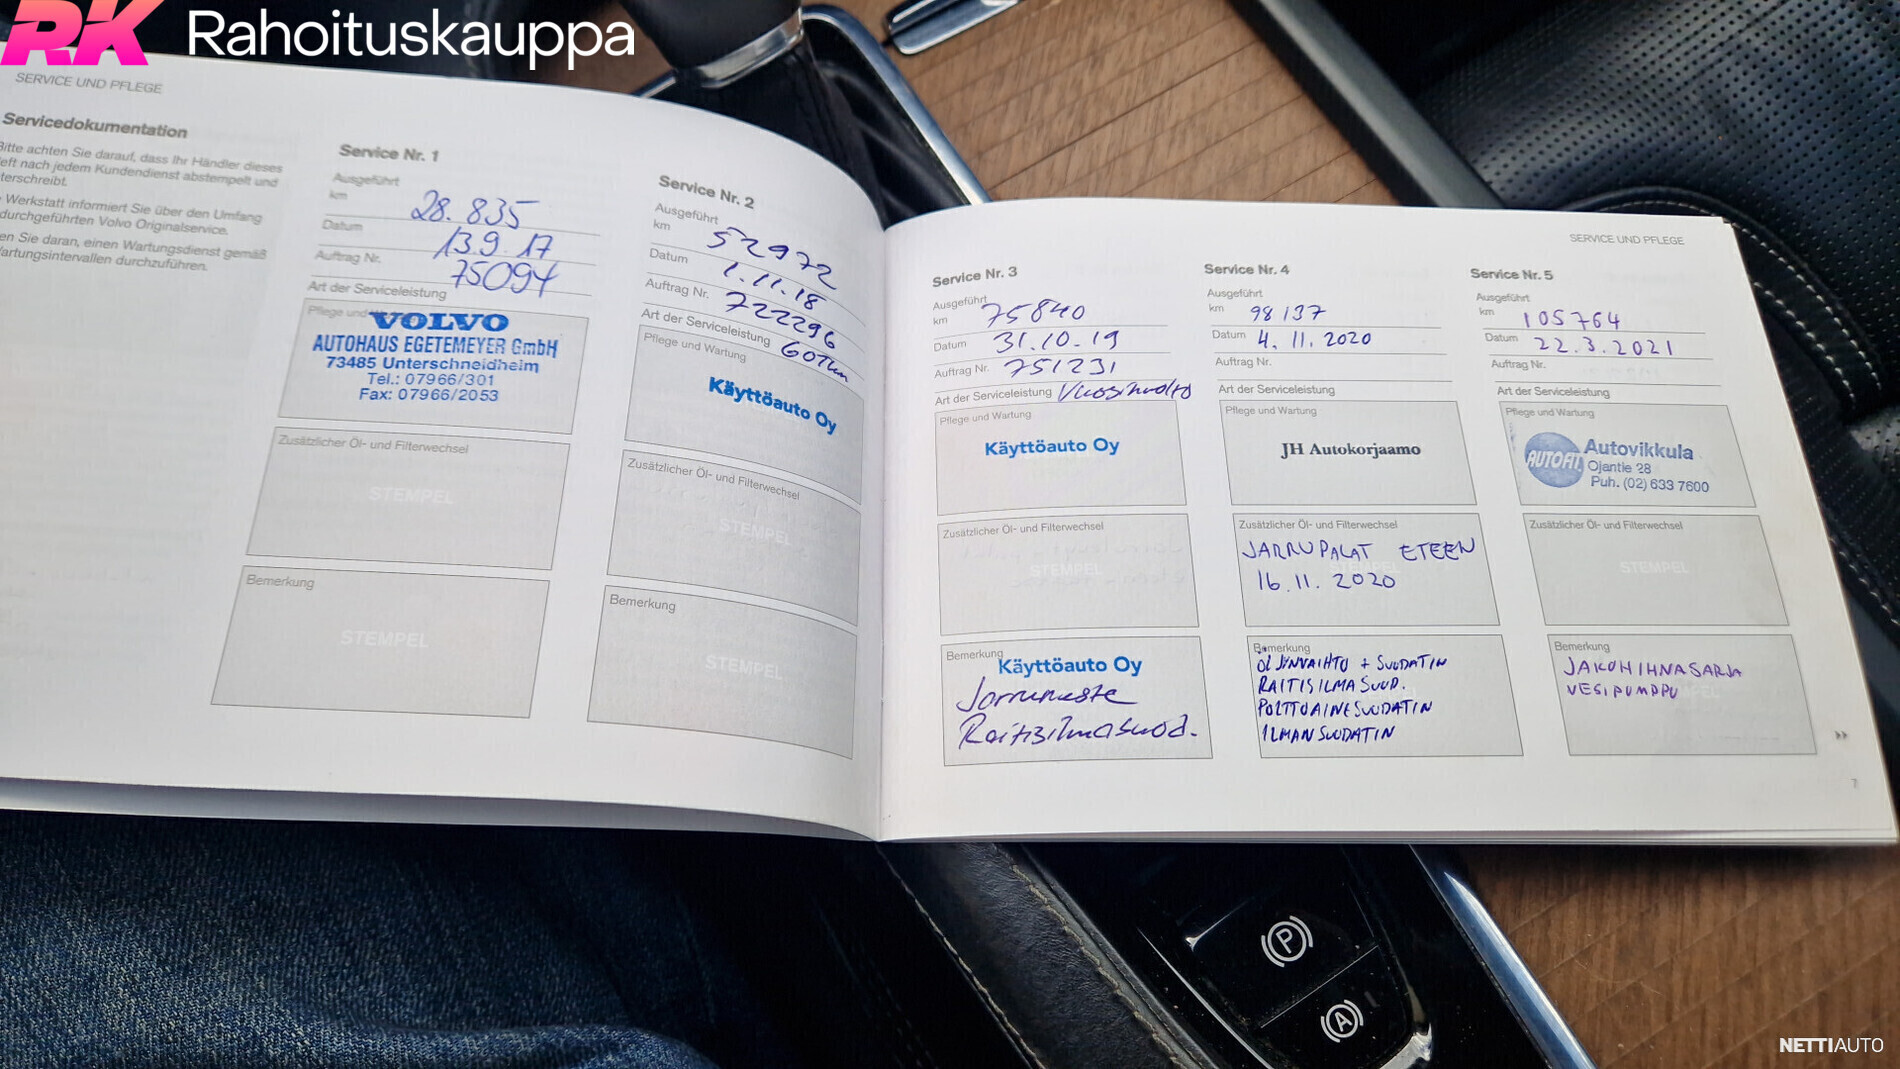 RK Rahoituskauppa
SERVICE UND PFLEGE
Servicedokumentation
Bitte achten Sie darauf, dass Ihr Händler dieses
eft nach jedem Kundendienst abstempelt und
terschreibt.
Werkstatt informiert Sie über den Umfang
durchgeführten Volvo Originalservice.
en Sie daran, einen Wartungsdienst gemäß
artungsintervallen durchzuführen.
Service Nr. 1
Ausgeführt
km 28.835
Datum 13.9.17
Auftrag Nr. 75094
Art der Serviceleistung
Pflege und
VOLVO
AUTOHAUS EGETEMEYER GmbH
73485 Unterschneidheim
Tel.: 07966/301
Fax: 07966/2053
Zusätzlicher Öl- und Filterwechsel
STEMPEL
Bemerkung
STEMPEL
Service Nr. 2
Ausgeführt
km 52972
Datum 1.11.18
Auftrag Nr. 722296
Art der Serviceleistung 60Tkm
Pflege und Wartung
Käyttöauto Oy
Zusätzlicher Öl- und Filterwechsel
STEMPEL
Bemerkung
STEMPEL
SERVICE UND PFLEGE
Service Nr. 3
Ausgeführt
km 75840
Datum 31.10.19
Auftrag Nr. 751231
Art der Serviceleistung Vuosihuolto
Pflege und Wartung
Käyttöauto Oy
Zusätzlicher Öl- und Filterwechsel
STEMPEL
Bemerkung
Käyttöauto Oy
Jarruneste
Raitisilmasuod.
Service Nr. 4
Ausgeführt
km 98137
Datum 4.11.2020
Auftrag Nr.
Art der Serviceleistung
Pflege und Wartung
JH Autokorjaamo
Zusätzlicher Öl- und Filterwechsel
JARRUPALAT ETEEN
16.11.2020
Bemerkung
ÖLJYNVAIHTO + SUODATIN
RAITISILMASUOD.
POLTTOAINESUODATIN
ILMANSUODATIN
Service Nr. 5
Ausgeführt
km 105764
Datum 22.3.2021
Auftrag Nr.
Art der Serviceleistung
Pflege und Wartung
AUTOFIT Autovikkula
Ojantie 28
Puh. (02) 633 7600
Zusätzlicher Öl- und Filterwechsel
STEMPEL
Bemerkung
JAKOHIHNASARJA
VESIPUMPPU
7
P
A
NETTIAUTO